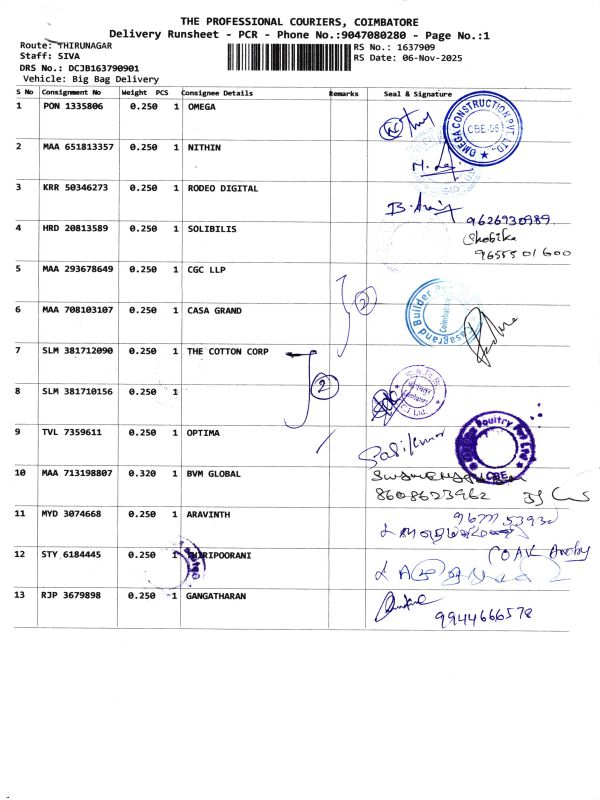 THE PROFESSIONAL COURIERS, COIMBATORE
Delivery Runsheet - PCR - Phone No.:9047080280 - Page No.:1
Route: THIRUNAGAR
Staff: SIVA
DRS No.: DCJB163790901
Vehicle: Big Bag Delivery
RS No.: 1637909
RS Date: 06-Nov-2025
S No Consignment No Weight PCS Consignee Details Remarks Seal & Signature
1 PON 1335806 0.250 1 OMEGA
OMEGA CONSTRUCTION PVT. LTD.,
CBE-05
2 MAA 651813357 0.250 1 NITHIN
3 KRR 50346273 0.250 1 RODEO DIGITAL
9626930989
4 HRD 20813589 0.250 1 SOLIBILIS
Shobika
9655501600
5 MAA 293678649 0.250 1 CGC LLP
2
6 MAA 708103107 0.250 1 CASA GRAND
Casagrand Builder
Coimbatore
7 SLM 381712090 1 0.250 1 THE COTTON CORP
2
8 SLM 381710156 0.250 1
9 TVL 7359611 0.250 1 OPTIMA
Sasikumar
Poultry Pvt Ltd
CBE
10 MAA 713198807 0.320 1 BVM GLOBAL
8608623962
11 MYD 3074668 0.250 1 ARAVINTH
12 STY 6184445 0.250 1 THIRIPOORANI
13 RJP 3679898 0.250 1 GANGATHARAN
9944666578